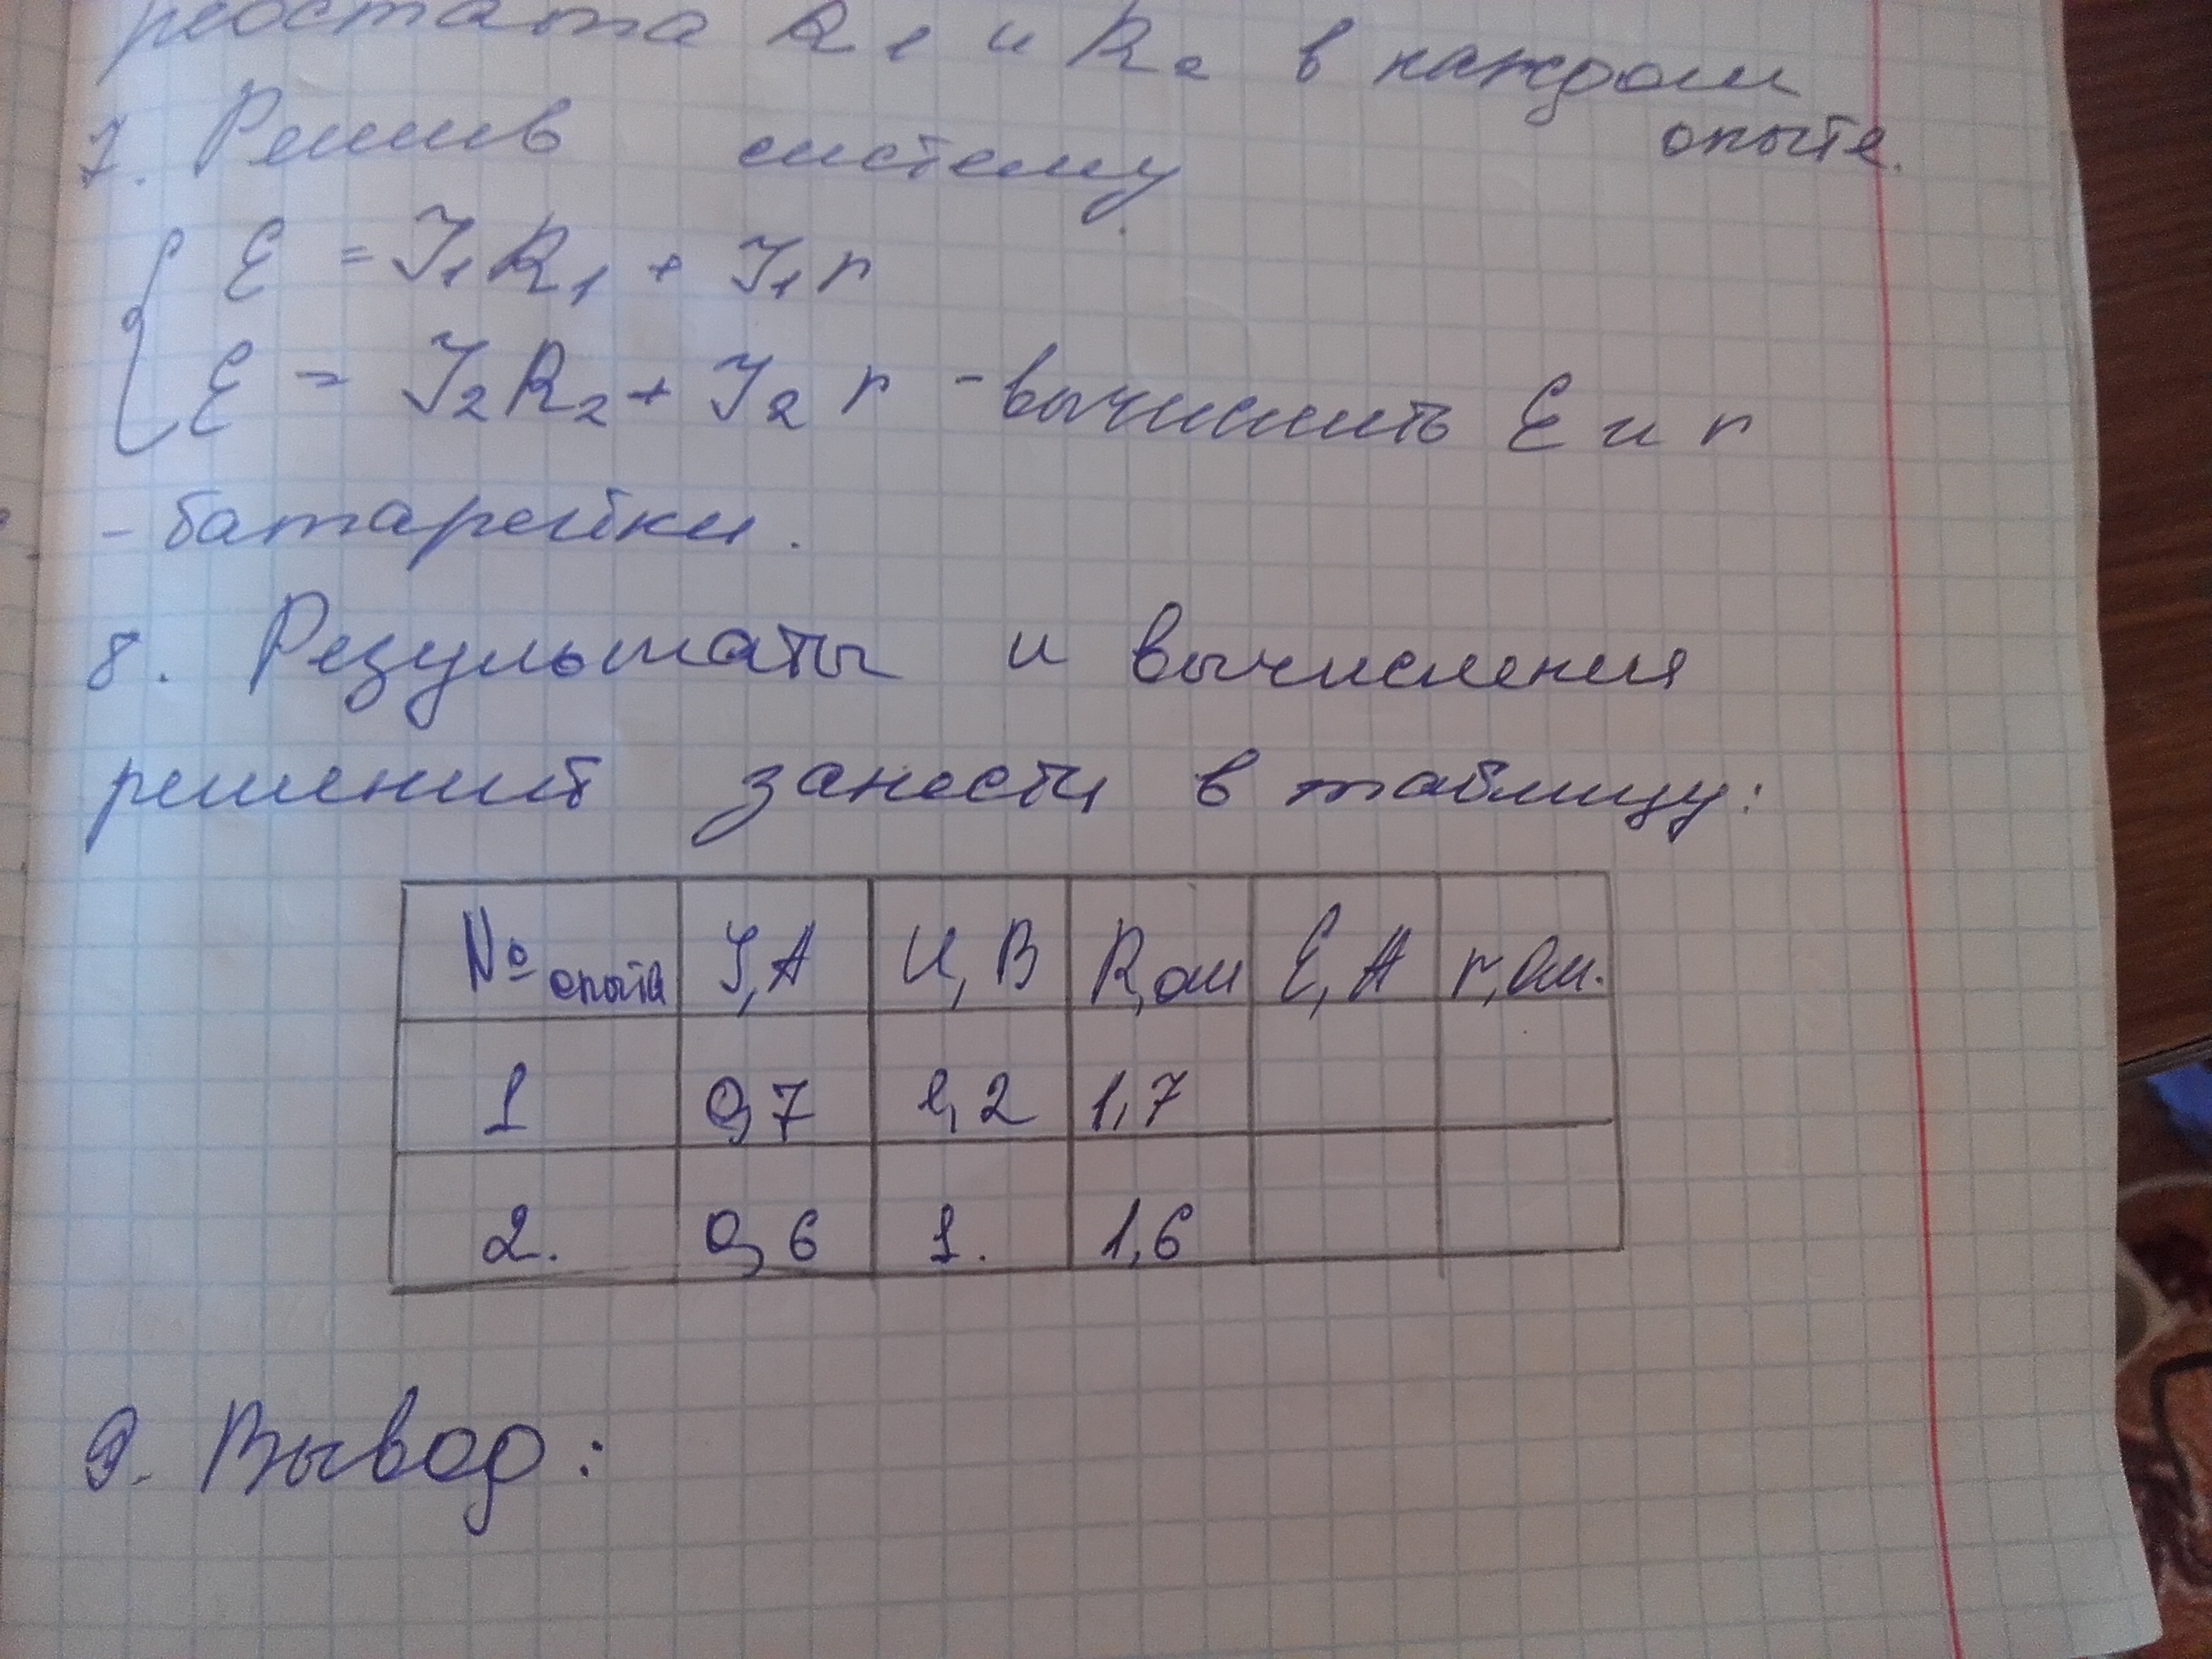 реостата R1 и R2 в каждом
опыте.
7. Решив систему
E = I1R1 + I1r
E = I2R2 + I2 r - вычислить E и r
- батарейки.
8. Результаты и вычисления
решений занести в таблицу:
№ опыта I,A U,B R,ом E,A r,Ом.
1 0,7 1,2 1,7
2. 0,6 1. 1,6
9. Вывод: